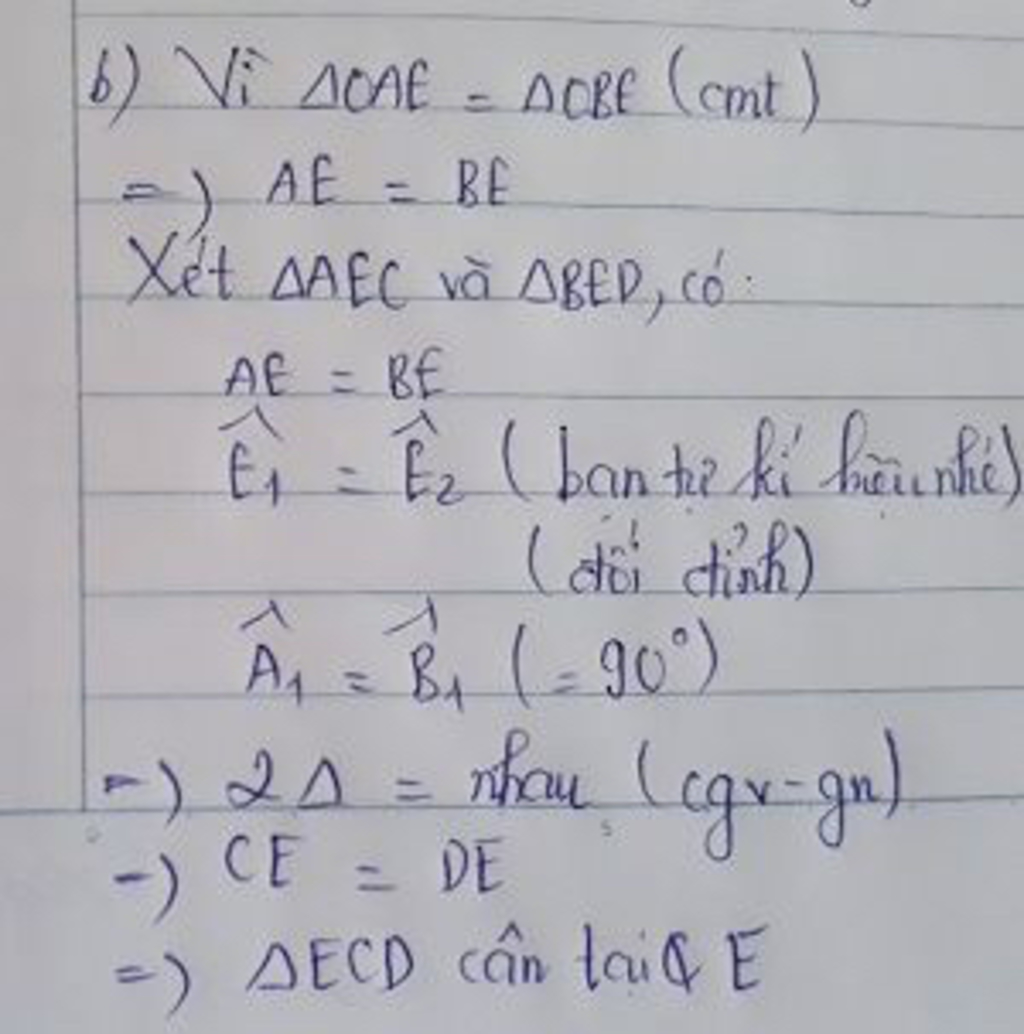 b) Vì ΔOAE = ΔOBE (cmt)
=) AE = BE
Xét ΔAEC và ΔBED, có:
AE = BE
Ê₁ = Ê₂ (bạn tự kí hiệu nhé)
(đối đỉnh)
Â₁ = B̂₁ (= 90°)
=) 2Δ = nhau (cgv-gn)
=) CE = DE
=) ΔECD cân tại E